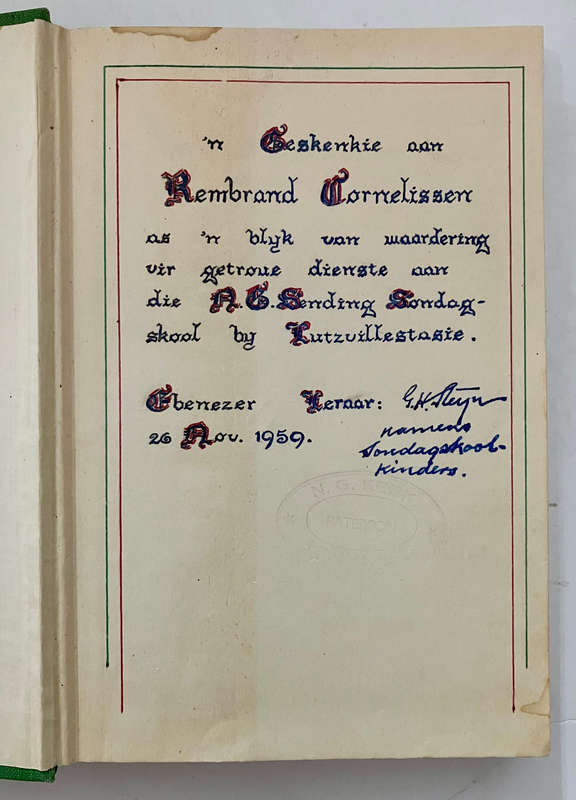 'n Geskenkie aan
Rembrand Cornelissen
as 'n blyk van waardering
vir getroue dienste aan
die N.G. Sending Sondag-
skool by Lutzvillestasie.
Ebenezer Leraar: G.H. Steyn
26 Nov. 1959. namens
Sondagskool-
kinders.
N. G.